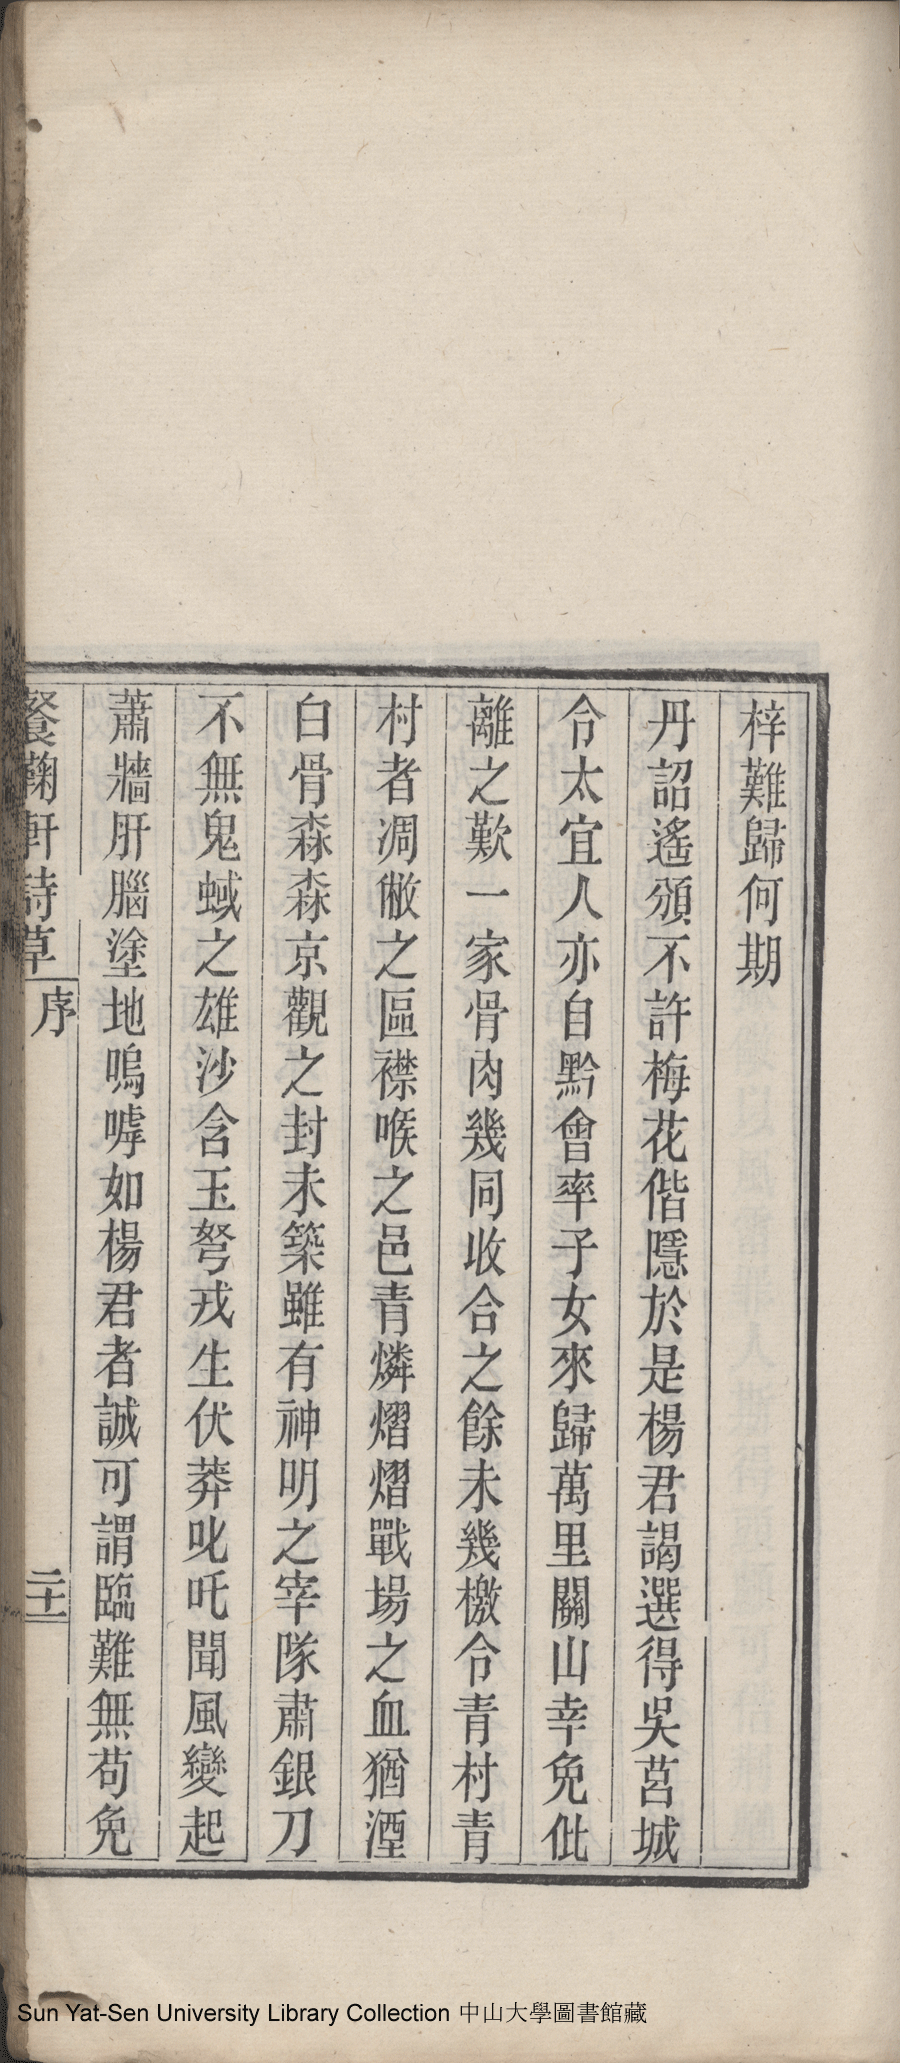 梓難歸何期
丹詔遙頒不許梅花偕隱於是楊君謁選得吳莒城
令太宜人亦自黔會率子女來歸萬里關山幸免仳
離之歎一家骨肉幾同收合之餘未幾檄合青村青
村者凋敝之區襟喉之邑青燐熠熠戰場之血猶湮
白骨森森京觀之封未築雖有神明之宰隊肅銀刀
不無鬼蜮之雄沙含玉弩戎生伏莽叱吒聞風變起
蕭牆肝腦塗地嗚嘑如楊君者誠可謂臨難無苟免
餐鞠軒詩草 序 二十一
Sun Yat-Sen University Library Collection 中山大學圖書館藏